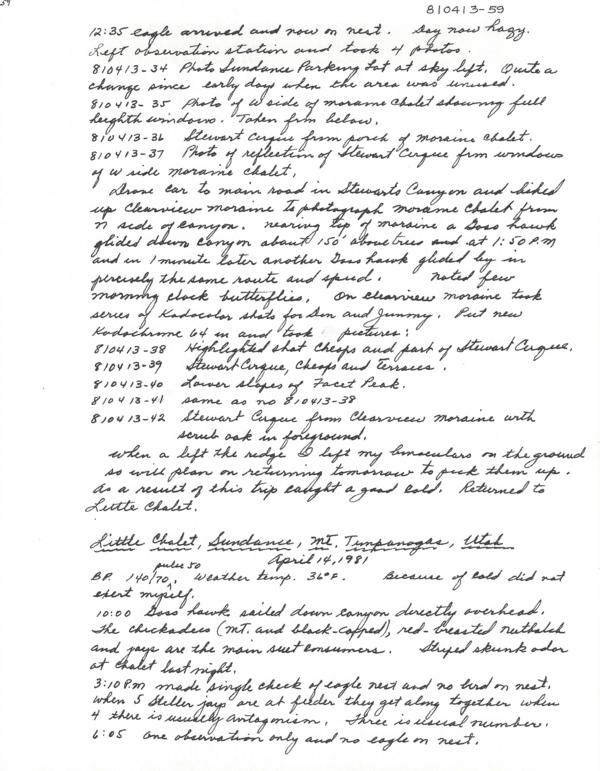 59
810413-59
12:35 eagle arrived and now on nest. Day now hazy.
Left observation station and took 4 photos.
810413-34 Photo Sundance Parking Lot at sky left. Quite a
change since early days when the area was unused.
810413-35 Photo of W side of moraine Chalet showing full
heighth windows. Taken frm below.
810413-36 Stewart Cirque from porch of moraine Chalet.
810413-37 Photo of reflection of Stewart Cirque frm windows
of W side moraine Chalet.
Drove car to main road in Stewarts Canyon and hiked
up Clearview moraine to photograph moraine Chalet from
N side of canyon. nearing top of moraine a Goss hawk
glided down canyon about 150' above trees and at 1:50 P.M
and in 1 minute later another Goss hawk glided by in
percisely the same route and speed. noted few
morning cloak butterflies. On clearview moraine took
series of Kodocolor shots for Don and Jimmy. Put new
Kodochrome 64 in and took pictures:
810413-38 Highlighted shot Cheops and part of Stewart Cirque.
810413-39 Stewart Cirque, Cheops and Terraces.
810413-40 Lower slopes of Facet Peak.
810413-41 same as no 810413-38
810413-42 Stewart Cirque from Clearview moraine with
scrub oak in foreground.
When a left the ridge I left my binoculars on the ground
so will plan on returning tomorrow to pick them up.
As a result of this trip caught a good cold. Returned to
Little Chalet.
Little Chalet, Sundance, Mt. Timpanogas, Utah
April 14, 1981
pulse 50
BP. 140/70, Weather temp. 36°F. Because of cold did not
exert myself.
10:00 Goss hawk sailed down canyon directly overhead.
The chickadees (mt. and black-capped), red-breasted nuthatch
and jays are the main suet consumers. Striped skunk odor
at chalet last night.
3:10 P.m made single check of eagle nest and no bird on nest.
When 5 Steller jays are at feeder they get along together when
4 there is usually antagonism. Three is usual number.
6:05 one observation only and no eagle on nest.